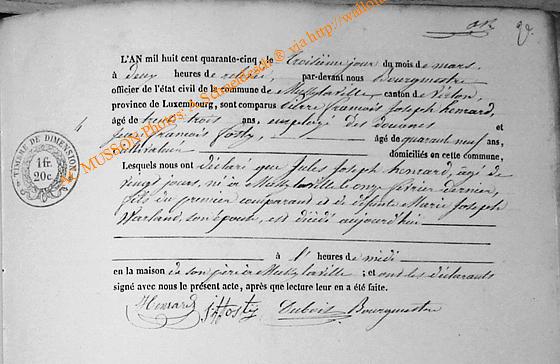 L'AN mil huit cent quarante-cinq, le Troisième jour du mois de mars,
à deux heures de relevée, par-devant nous Bourgmestre
officier de l'état civil de la commune de Mussylaville canton de Virton,
province de Luxembourg, sont comparus Pierre François Joseph Henrard,
âgé de trente trois ans, employé des douanes et
Jean François Hosty, âgé de quarante neuf ans,
cultivateur domiciliés en cette commune,
Lesquels nous ont déclaré que Jules Joseph Henrard, âgé de
vingt jours, né à Mussylaville le onze février dernier,
fils du premier comparant et de défunte Marie Joseph
Warland, son épouse, est décédé aujourd'hui
à heures de midi
en la maison de son père à Mussylaville ; et ont les déclarants
signé avec nous le présent acte, après que lecture leur en a été faite.
Henrard Hosty Dubois Bourgmestre
TIMBRE DE DIMENSION
1 fr.
20 c.
MUSSON-Photos: A.Schneidesch © via http://wallon